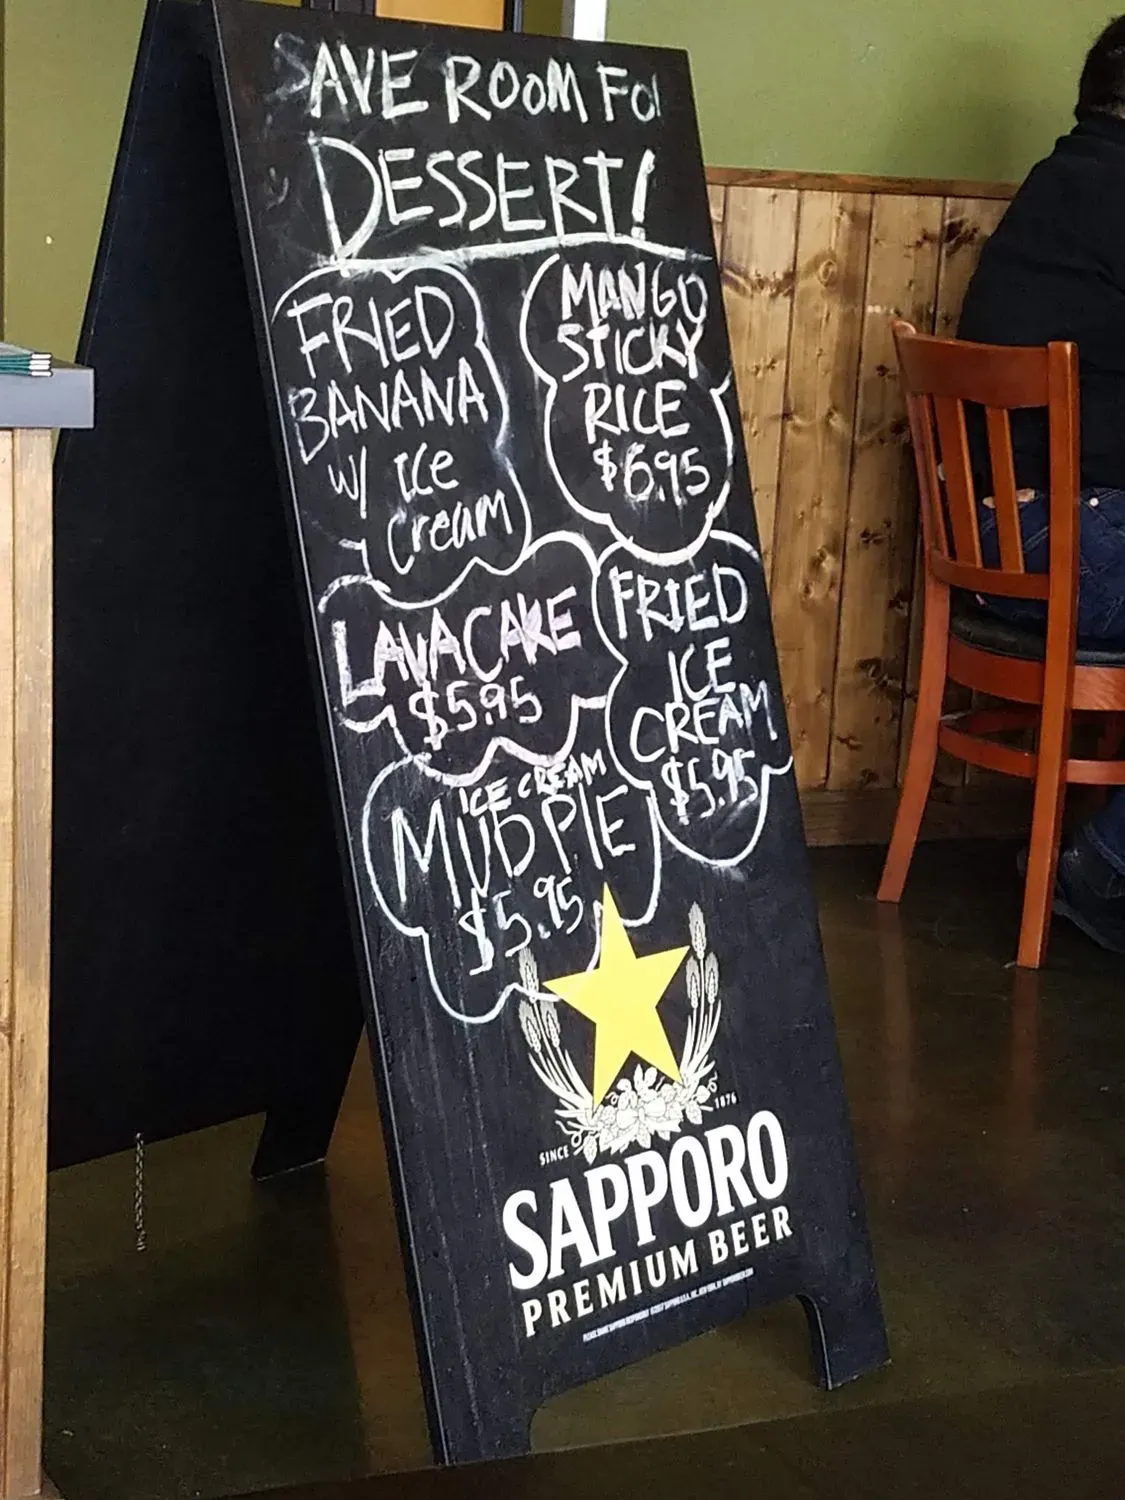 SAVE ROOM FOr
DESSERT!
FRIED
BANANA
W/ ICe
Cream
MANGO
STICKY
RICE
$6.95
LAVA CAKE
$5.95
FRIED
ICE
CREAM
$5.95
ICE CREAM
MUD PIE
$5.95
SINCE 1876
SAPPORO
PREMIUM BEER